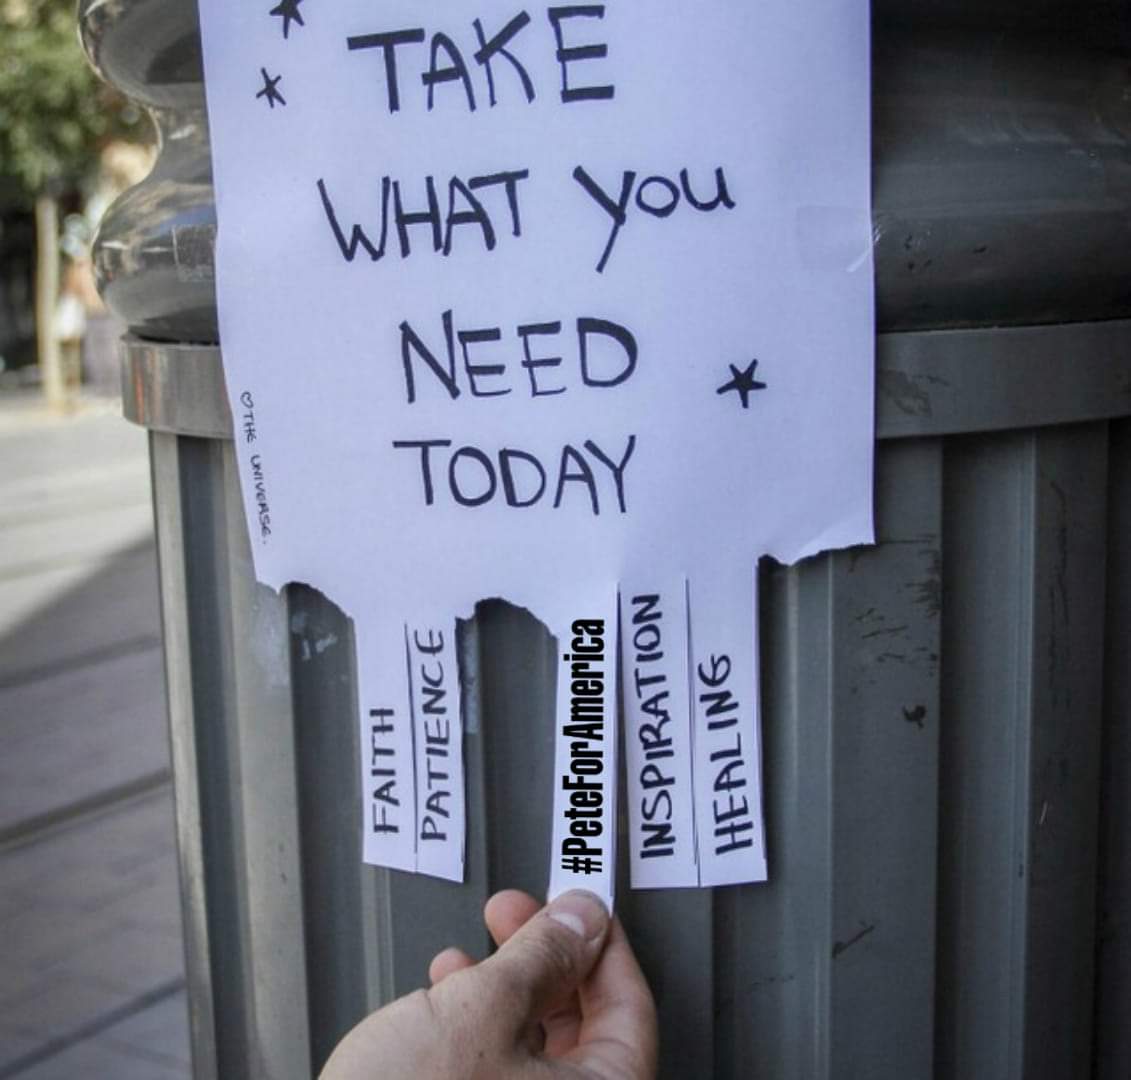 TAKE
WHAT you
NEED
TODAY
♡ THE UNIVERSE.
FAITH
PATIENCE
#PeteForAmerica
INSPIRATION
HEALING